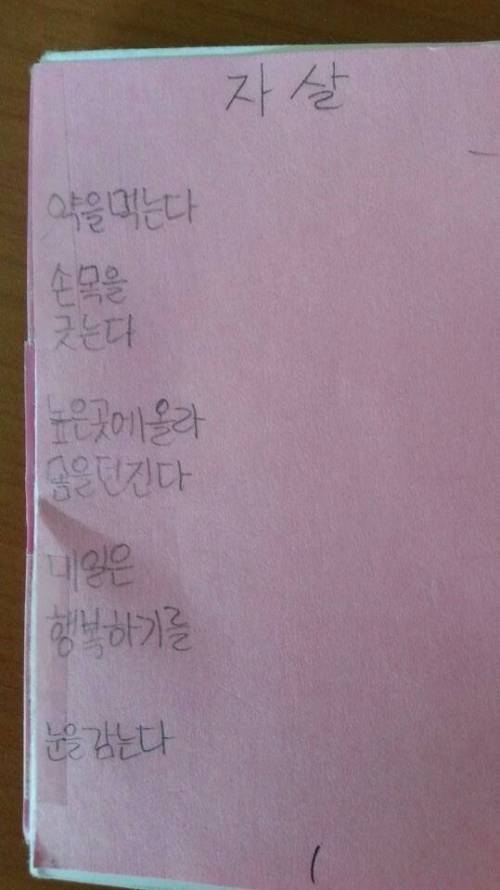 자살
약을 먹는다
손목을
긋는다
높은곳에 올라
몸을 던진다
내일은
행복하기를
눈을 감는다